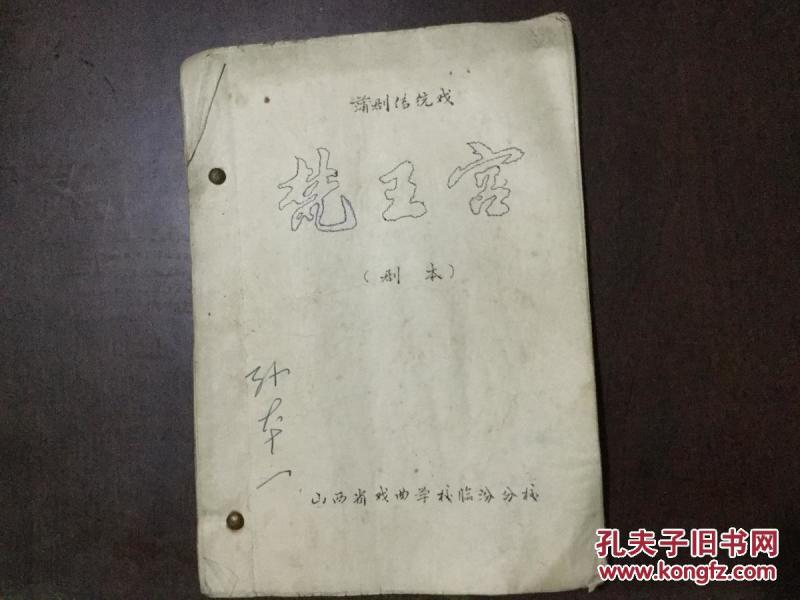 蒲剧传统戏
梵王宫
（剧本）
山西省戏曲学校临汾分校
孔夫子旧书网
www.kongfz.com